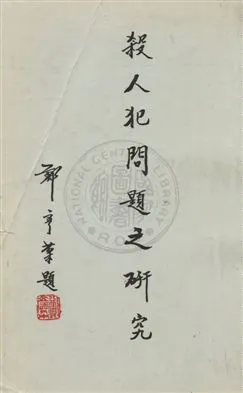 殺人犯問題之研究
鄭亨業題
NATIONAL CENTRAL LIBRARY